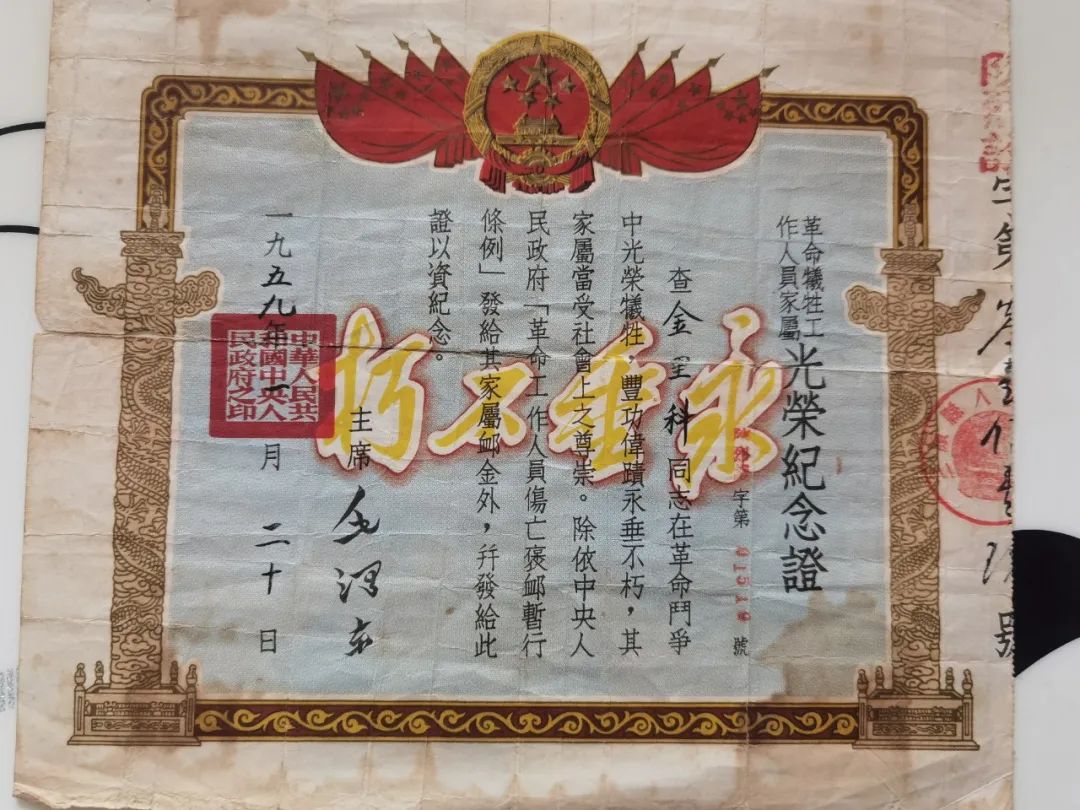 字第
號
革命犧牲工
作人員家屬
光榮紀念證
字第
號
查金 科同志在革命鬥爭
中光榮犧牲,豐功偉蹟永垂不朽,其
家屬當受社會上之尊崇。除依中央人
民政府「革命工作人員傷亡褒卹暫行
條例」發給其家屬卹金外,幷發給此
證以資紀念。
永垂不朽
主席 毛澤東
一九五九年一月二十日
中華人民共
和國中央人
民政府之印